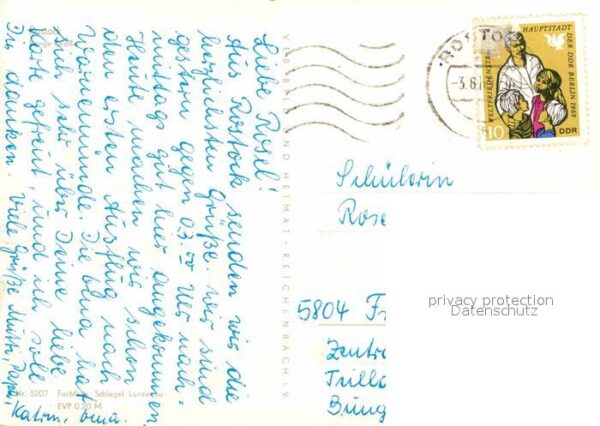 Rostock
Lange Straße
Liebe Rosel!
Aus Rostock senden wir die
herzlichsten Grüße. Wir sind
gestern gegen 03 00 Uhr nach-
mittags gut hier angekommen.
Heute machen wir schon
den ersten Ausflug nach
Warnemünde. Die Oma hat
sich sehr über Deine liebe
Karte gefreut, und ich soll
Dir danken. Viele Grüße Mutti, Papa,
Katrin, Oma.
Nr. 5207 Farbfoto: Schlegel, Lunzenau
EVP 0,20 M
VEB BILD UND HEIMAT · REICHENBACH I. V.
ROSTOCK
3.6.
WELTFRIEDENSTREFFEN
HAUPTSTADT DER DDR BERLIN 1969
10
DDR
Schülerin
Rose
5804 F
Zentra
Trillo
Bung
privacy protection
Datenschutz